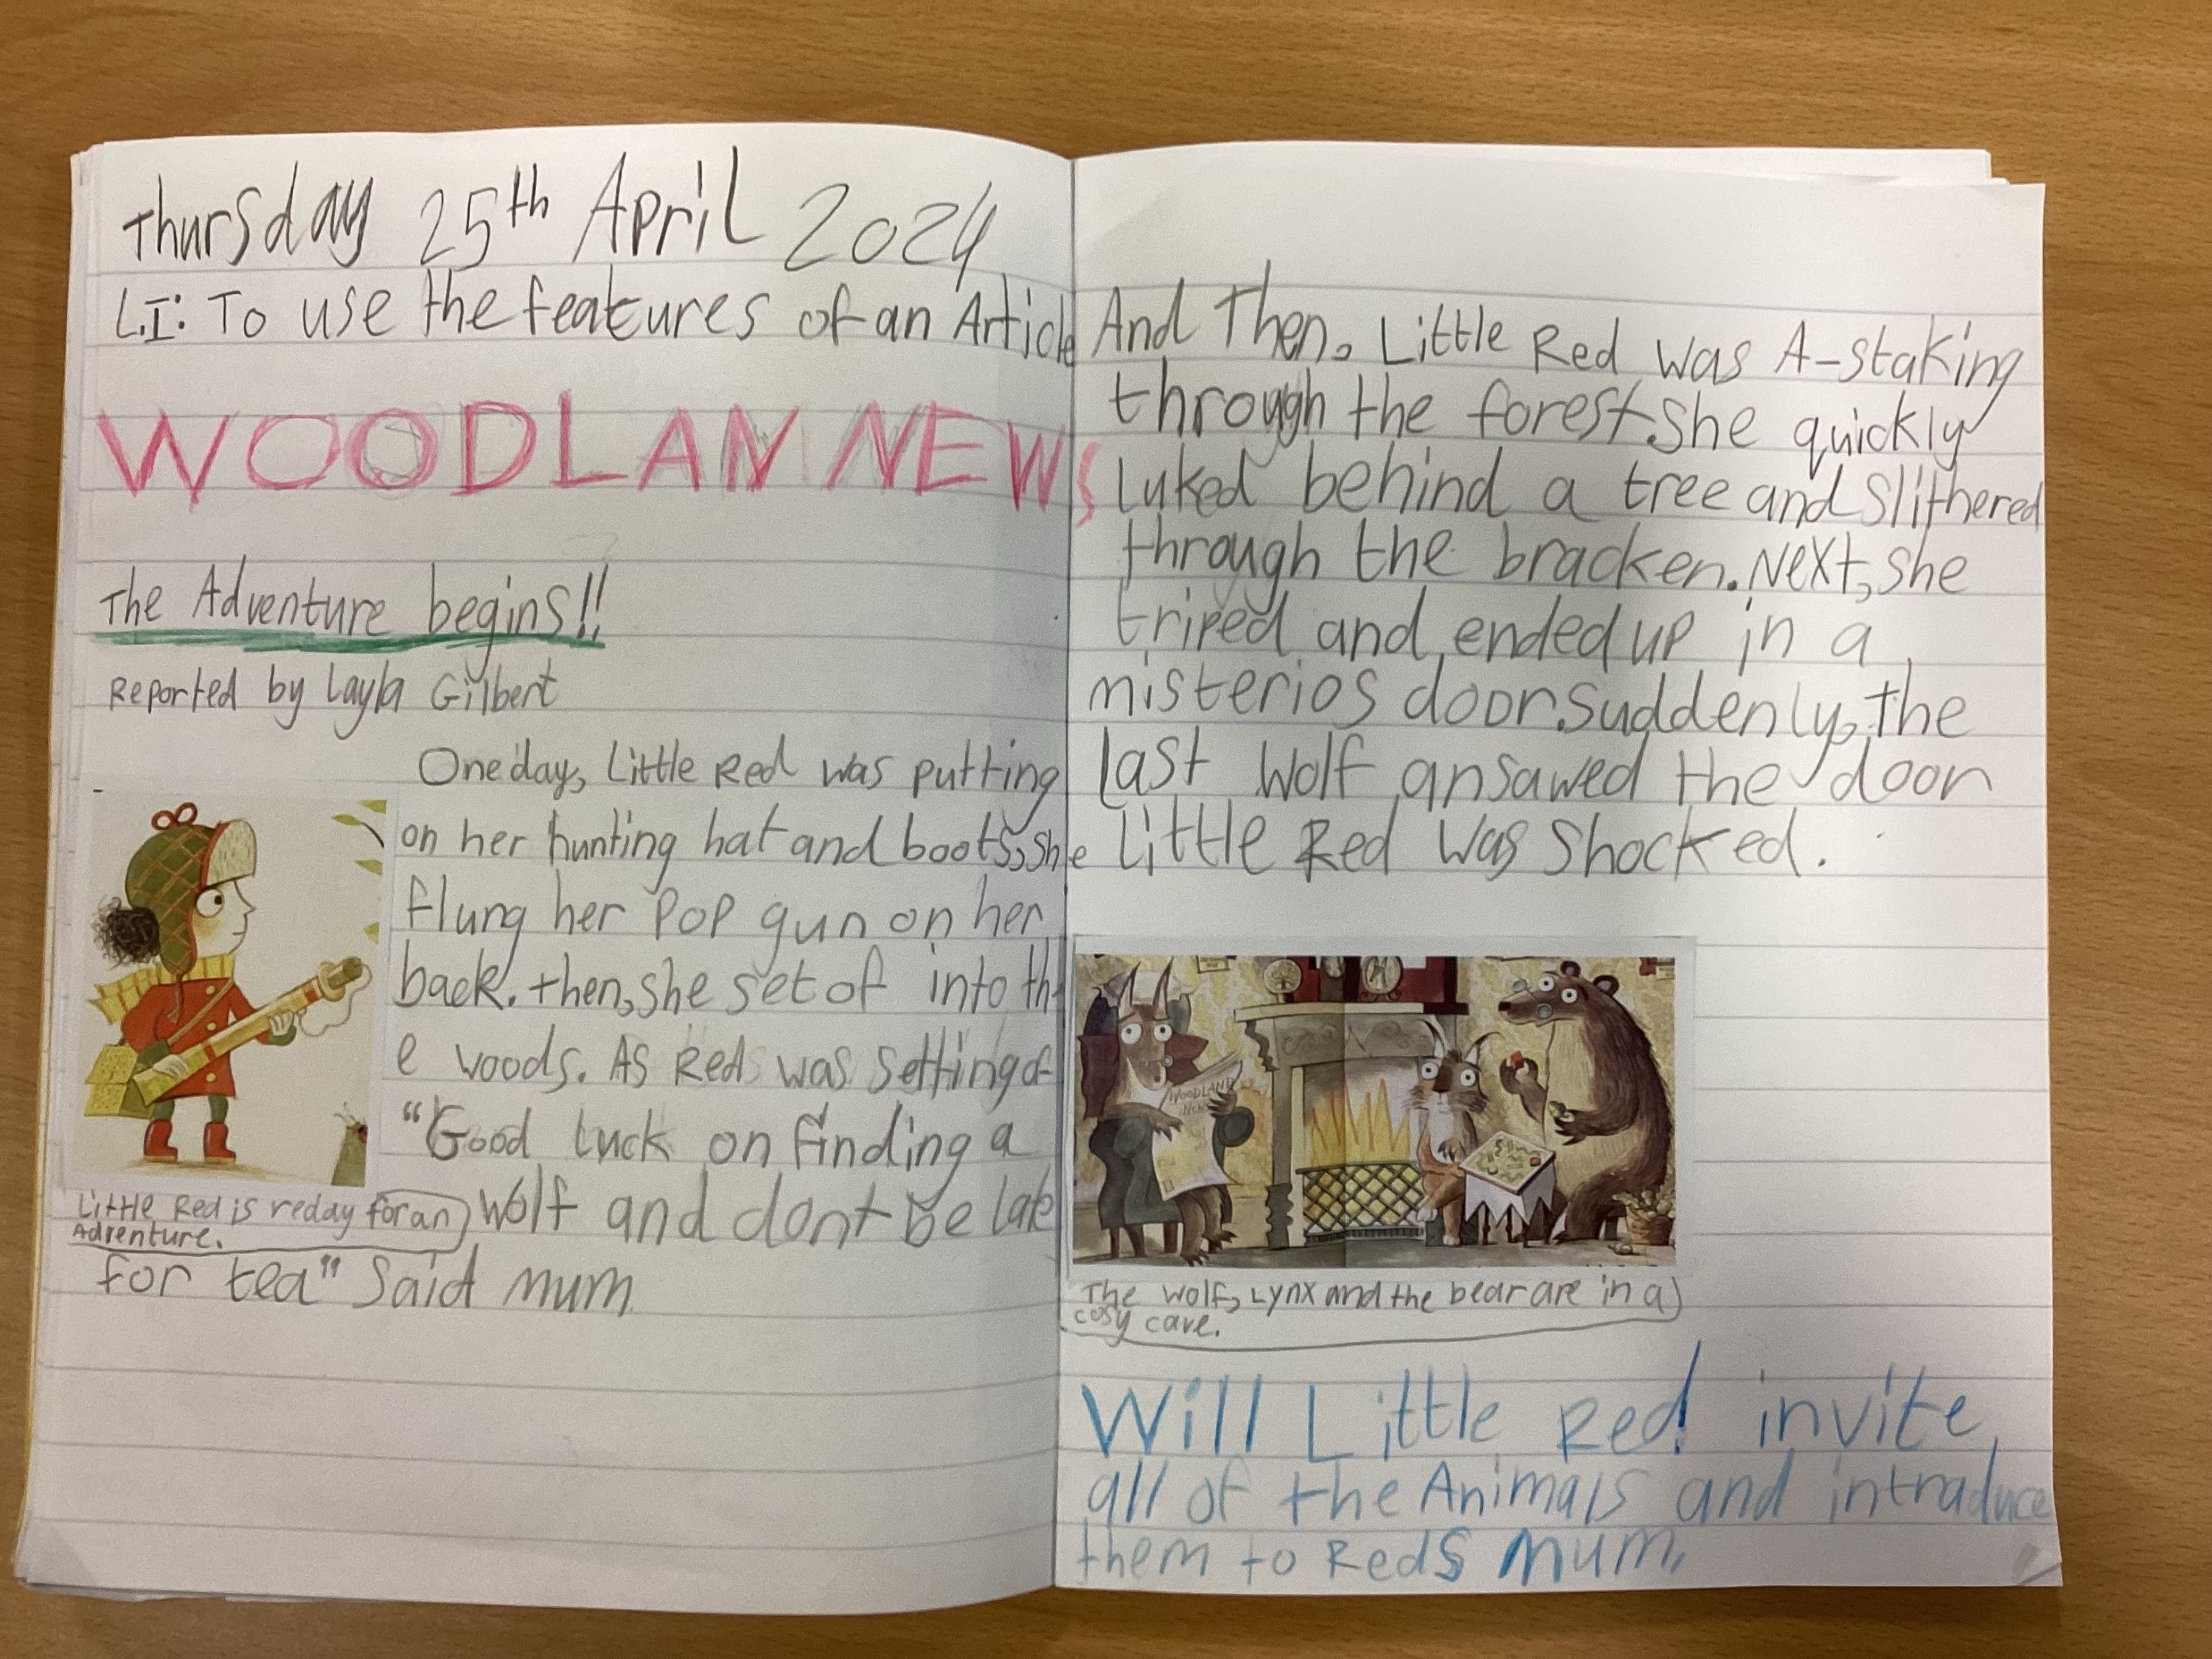 Thursday 25th April 2024
L.I: To use the features of an Article
WOODLAN NEWS
The Adventure begins!!
Reported by Layla Gilbert
One day, Little Red was putting
on her hunting hat and boots, she
flung her pop gun on her
back. then, she set of into th
e woods. As Red was setting of
"Good luck on finding a
Wolf and dont be late
for tea" Said mum
Little Red is reday for an
Adventure.
And Then, Little Red was A-staking
through the forest. She quickly
luked behind a tree and Slithered
through the bracken. Next, she
triped and ended up in a
misterios door. Suddenly, the
last wolf ansawed the door
Little Red was Shocked.
WOODLAND
The wolf, Lynx and the bear are in a
cosy cave.
Will Little Red invite
all of the Animals and intraduce
them to Reds mum.